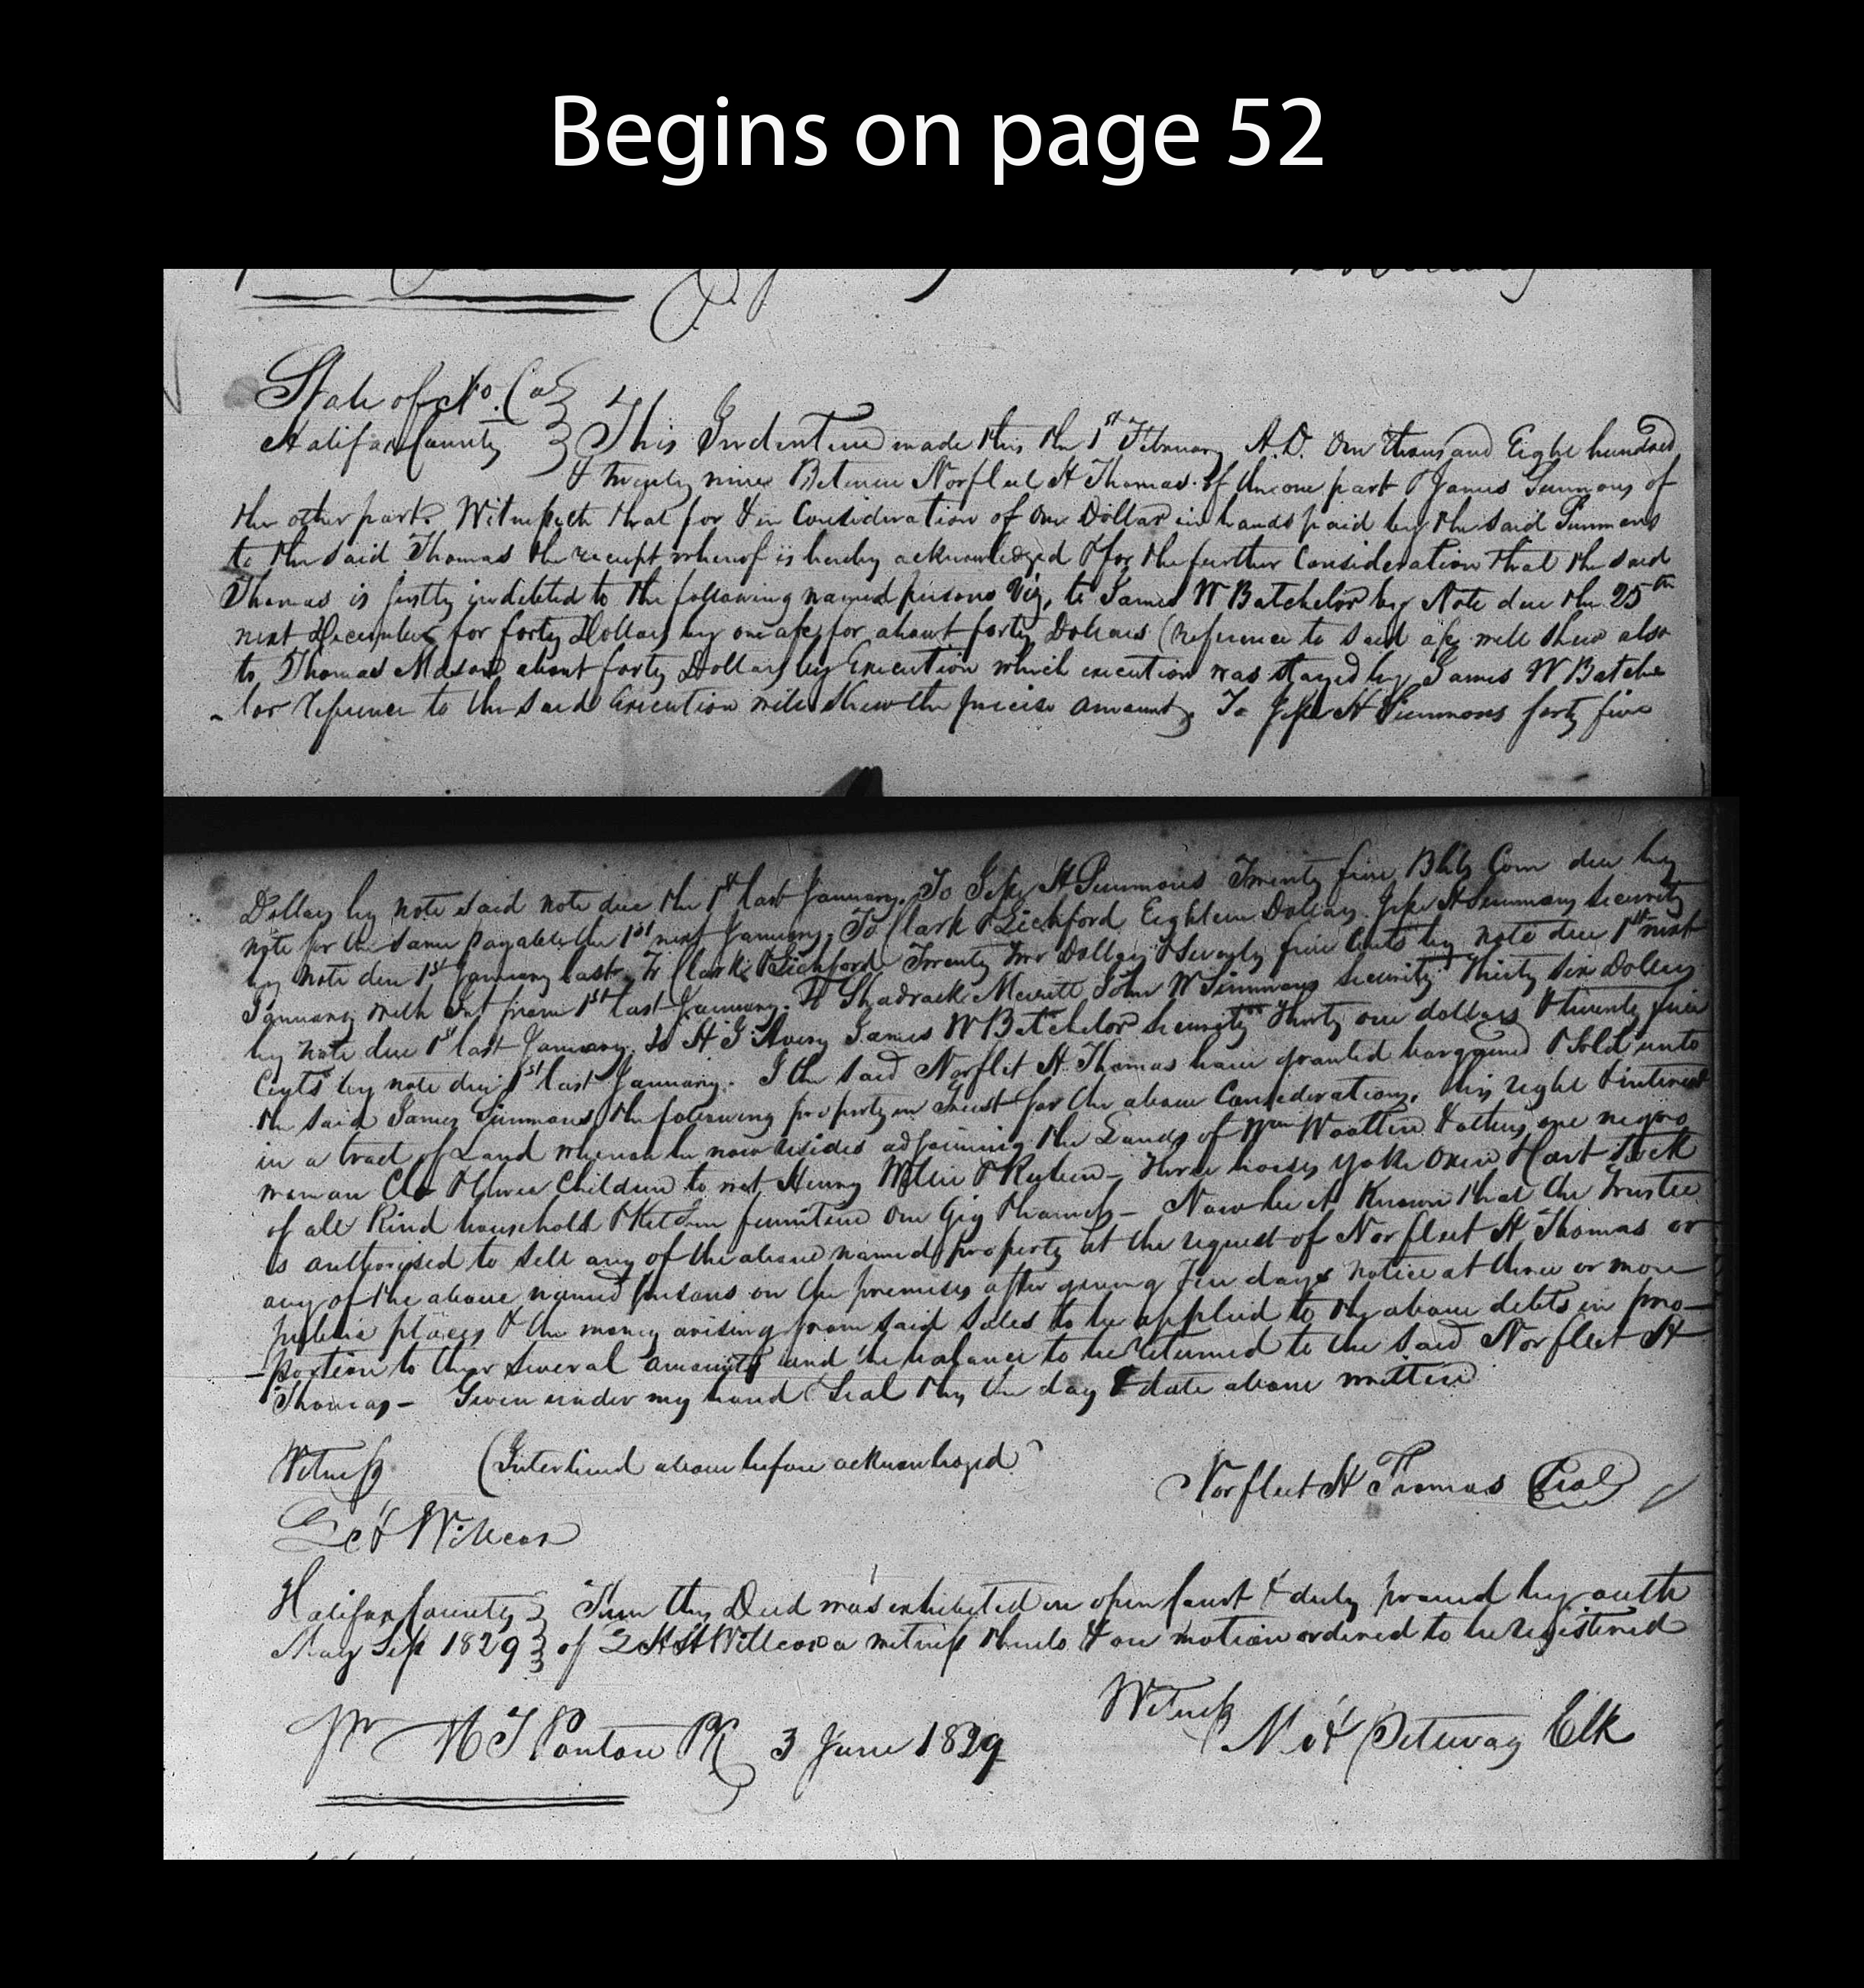 Begins on page 52
State of No. Ca
Halifax County This Indenture made this the 1st February A.D. One thousand Eight hundred
& twenty nine Between Norfleet H Thomas of the one part & James Simmons of
the other part. Witnesseth that for & in Consideration of One Dollar in hands paid by the said Simmons
to the said Thomas the receipt whereof is hereby acknowledged & for the further Consideration that the said
Thomas is justly indebted to the following named persons Viz, to James W Batchelor by Note due the 25th
next December for forty Dollars by one a/c for about forty Dollars (reference to said a/c will shew also
to Thomas Mason about forty Dollars by Execution which execution was stayed by James W Batche
-lor reference to the said Execution will shew the precise amount, To Jesse H Simmons forty five
Dollars by note said note due the 1st last January. To Jesse H Simmons Twenty five Bbls Corn due by
note for the same payable the 1st next January, To Clark & Bickford Eighteen Dollars Jesse H Simmons security
by note due 1st January last, To Clark & Bickford Twenty two Dollars & Seventy five Cents by note due 1st next
January with Int from 1st last January. To Shadrack Merritt John W Simmons security Thirty six Dollars
by note due 1st last January. To H G Avery James W Batchelor security Thirty one dollars & twenty five
Cents by note due 1st last January. I the said Norflet H Thomas have granted bargained & Sold unto
the said James Simmons the following property in Trust for the above Consideration, his right & interest
in a tract of Land whereon he now resides adjoining the Lands of Wm Wootten & others, one negro
woman & three Children to wit Henry & Reuben - three horses yoke Oxen Cart Stock
of all Kind household & Kitchen furniture One Gig & harness - Now be it Known that the Trustee
is authorised to sell any of the above named property at the request of Norfleet H Thomas or
any of the above named persons on the premises after giving Ten days notice at three or more
publick places & the money arising from said Sales to be applied to the above debts in pro-
-portion to their several amounts and the balance to be returned to the said Norfleet H
Thomas - Given under my hand & Seal this the day & date above written
Witness (Interlined above before acknowledged)
Norfleet H Thomas Seal
Willcox
Halifax County Then this Deed was exhibited in open Court & duly proved by oath
May Sess 1829 of Willcox a witness thereto & on motion ordered to be registered
Witness
Pr M T Ponton PR 3 June 1829
Petway Clk